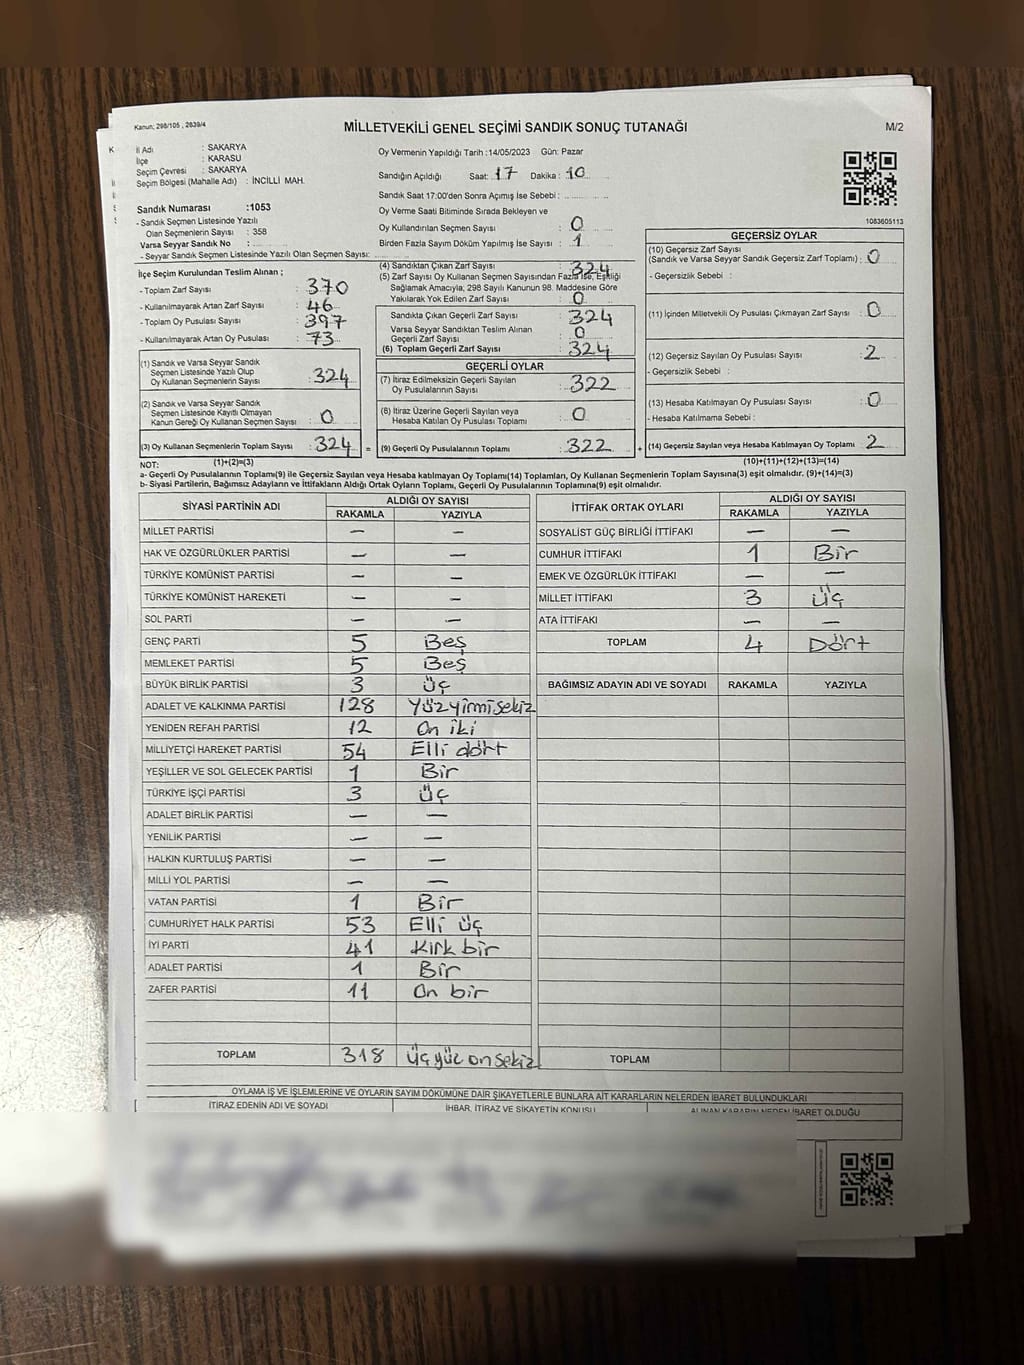 Kanun; 298/105 , 2839/4
MİLLETVEKİLİ GENEL SEÇİMİ SANDIK SONUÇ TUTANAĞI
M/2
İl Adı : SAKARYA
İlçe : KARASU
Seçim Çevresi : SAKARYA
Seçim Bölgesi (Mahalle Adı) : İNCİLLİ MAH.
Sandık Numarası :1053
- Sandık Seçmen Listesinde Yazılı
Olan Seçmenlerin Sayısı : 358
Varsa Seyyar Sandık No :
- Seyyar Sandık Seçmen Listesinde Yazılı Olan Seçmen Sayısı:
Oy Vermenin Yapıldığı Tarih :14/05/2023 Gün: Pazar
Sandığın Açıldığı Saat: 17 Dakika : 10
Sandık Saat 17:00'den Sonra Açımış İse Sebebi :
Oy Verme Saati Bitiminde Sırada Bekleyen ve
Oy Kullandırılan Seçmen Sayısı : 0
Birden Fazla Sayım Döküm Yapılmış İse Sayısı : 1
1083605113
İlçe Seçim Kurulundan Teslim Alınan ;
- Toplam Zarf Sayısı : 370
- Kullanılmayarak Artan Zarf Sayısı : 46
- Toplam Oy Pusulası Sayısı : 397
- Kullanılmayarak Artan Oy Pusulası : 73
(1) Sandık ve Varsa Seyyar Sandık
Seçmen Listesinde Yazılı Olup
Oy Kullanan Seçmenlerin Sayısı : 324
(2) Sandık ve Varsa Seyyar Sandık
Seçmen Listesinde Kayıtlı Olmayan
Kanun Gereği Oy Kullanan Seçmen Sayısı : 0
(3) Oy Kullanan Seçmenlerin Toplam Sayısı : 324 =
(4) Sandıktan Çıkan Zarf Sayısı : 324
(5) Zarf Sayısı Oy Kullanan Seçmen Sayısından Fazla İse, Eşitliği
Sağlamak Amacıyla, 298 Sayılı Kanunun 98. Maddesine Göre
Yakılarak Yok Edilen Zarf Sayısı : 0
Sandıkta Çıkan Geçerli Zarf Sayısı : 324
Varsa Seyyar Sandıktan Teslim Alınan
Geçerli Zarf Sayısı : 0
(6) Toplam Geçerli Zarf Sayısı : 324
GEÇERLİ OYLAR
(7) İtiraz Edilmeksizin Geçerli Sayılan
Oy Pusulalarının Sayısı : 322
(8) İtiraz Üzerine Geçerli Sayılan veya
Hesaba Katılan Oy Pusulaları Toplamı : 0
(9) Geçerli Oy Pusulalarının Toplamı : 322 +
GEÇERSİZ OYLAR
(10) Geçersiz Zarf Sayısı
(Sandık ve Varsa Seyyar Sandık Geçersiz Zarf Toplamı) : 0
- Geçersizlik Sebebi :
(11) İçinden Milletvekili Oy Pusulası Çıkmayan Zarf Sayısı : 0
(12) Geçersiz Sayılan Oy Pusulası Sayısı : 2
- Geçersizlik Sebebi :
(13) Hesaba Katılmayan Oy Pusulası Sayısı : 0
- Hesaba Katılmama Sebebi :
(14) Geçersiz Sayılan veya Hesaba Katılmayan Oy Toplamı : 2
NOT: (1)+(2)=(3) (10)+(11)+(12)+(13)=(14)
a- Geçerli Oy Pusulalarının Toplamı(9) ile Geçersiz Sayılan veya Hesaba katılmayan Oy Toplamı(14) Toplamları, Oy Kullanan Seçmenlerin Toplam Sayısına(3) eşit olmalıdır. (9)+(14)=(3)
b- Siyasi Partilerin, Bağımsız Adayların ve İttifakların Aldığı Ortak Oyların Toplamı, Geçerli Oy Pusulalarının Toplamına(9) eşit olmalıdır.
SİYASİ PARTİNİN ADI ALDIĞI OY SAYISI
RAKAMLA YAZIYLA
MİLLET PARTİSİ — —
HAK VE ÖZGÜRLÜKLER PARTİSİ — —
TÜRKİYE KOMÜNİST PARTİSİ — —
TÜRKİYE KOMÜNİST HAREKETİ — —
SOL PARTİ — —
GENÇ PARTİ 5 Beş
MEMLEKET PARTİSİ 5 Beş
BÜYÜK BİRLİK PARTİSİ 3 üç
ADALET VE KALKINMA PARTİSİ 128 Yüzyirmisekiz
YENİDEN REFAH PARTİSİ 12 On iki
MİLLİYETÇİ HAREKET PARTİSİ 54 Elli dört
YEŞİLLER VE SOL GELECEK PARTİSİ 1 Bir
TÜRKİYE İŞÇİ PARTİSİ 3 üç
ADALET BİRLİK PARTİSİ — —
YENİLİK PARTİSİ — —
HALKIN KURTULUŞ PARTİSİ — —
MİLLİ YOL PARTİSİ — —
VATAN PARTİSİ 1 Bir
CUMHURİYET HALK PARTİSİ 53 Elli üç
İYİ PARTİ 41 Kırk bir
ADALET PARTİSİ 1 Bir
ZAFER PARTİSİ 11 On bir
TOPLAM 318 üçyüz onsekiz
İTTİFAK ORTAK OYLARI ALDIĞI OY SAYISI
RAKAMLA YAZIYLA
SOSYALİST GÜÇ BİRLİĞİ İTTİFAKI — —
CUMHUR İTTİFAKI 1 Bir
EMEK VE ÖZGÜRLÜK İTTİFAKI — —
MİLLET İTTİFAKI 3 üç
ATA İTTİFAKI — —
TOPLAM 4 Dört
BAĞIMSIZ ADAYIN ADI VE SOYADI RAKAMLA YAZIYLA
TOPLAM
OYLAMA İŞ VE İŞLEMLERİNE VE OYLARIN SAYIM DÖKÜMÜNE DAİR ŞİKAYETLERLE BUNLARA AİT KARARLARIN NELERDEN İBARET BULUNDUKLARI
İTİRAZ EDENİN ADI VE SOYADI İHBAR, İTİRAZ VE ŞİKAYETİN KONUSU ALINAN KARARIN NEDEN İBARET OLDUĞU